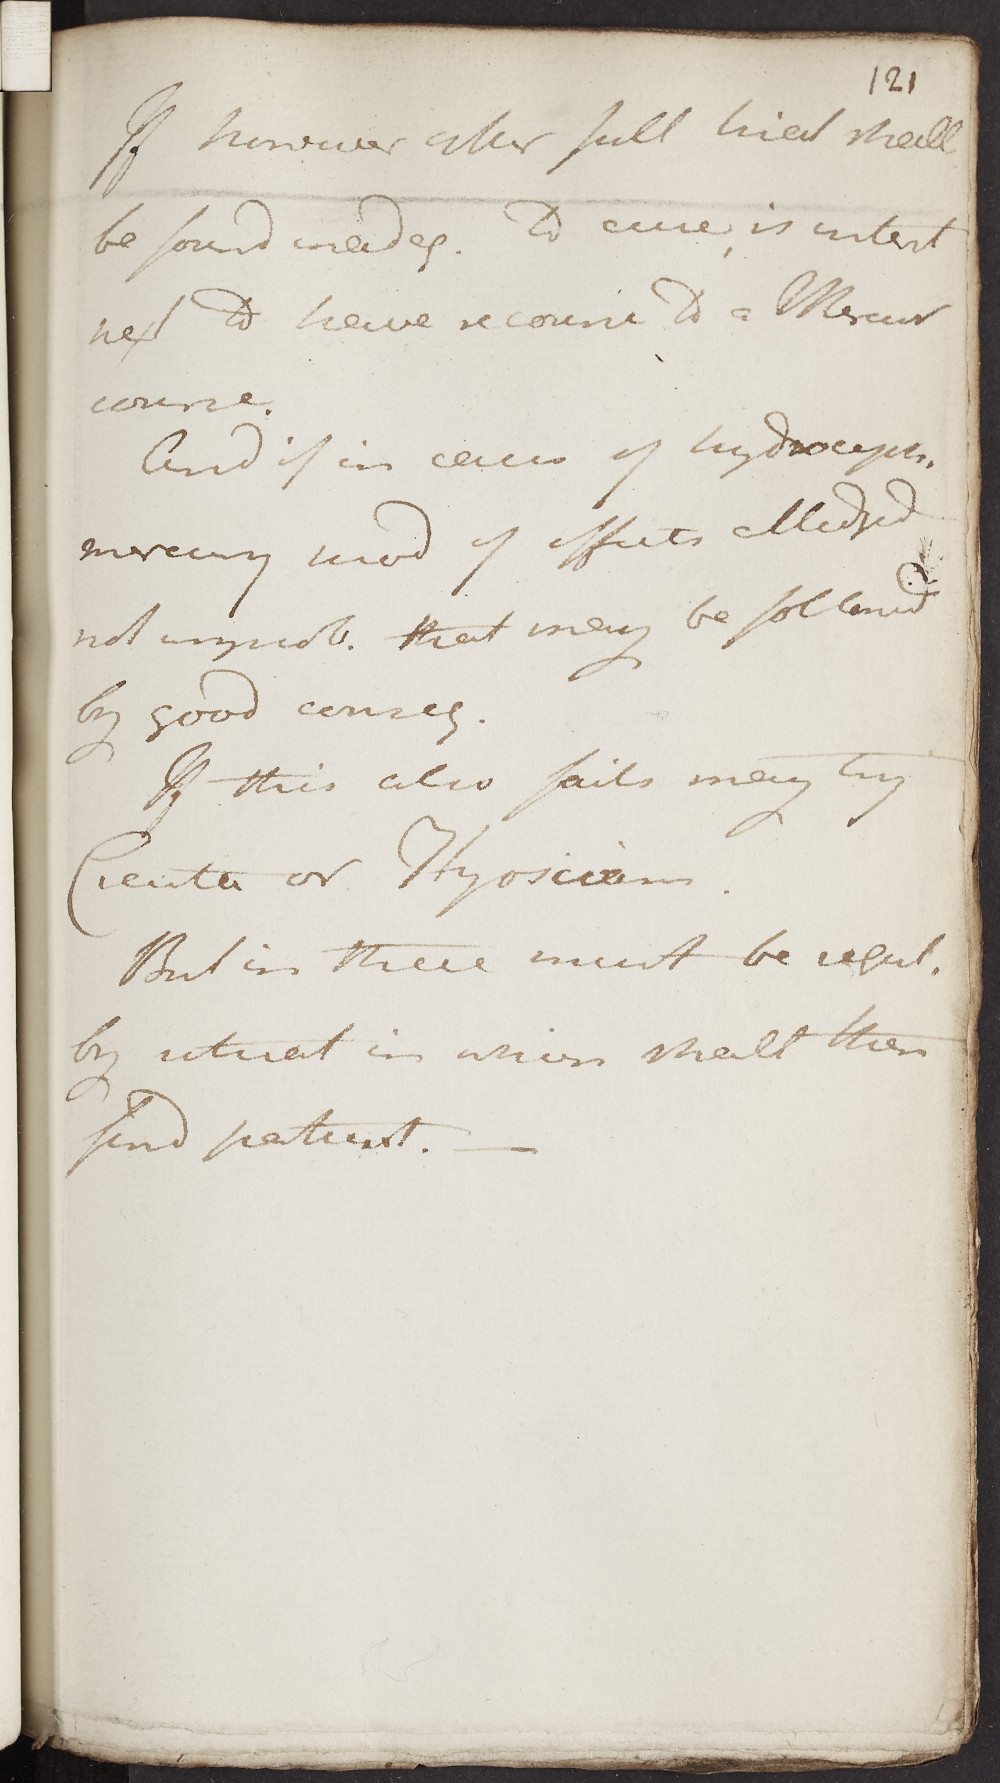 121
If however after full trial shall
be found inadeq. to cure, is intent
next to have recourse to a Mercur
course.
And if in cases of hydroceph.
mercury prod of effects alledged
not improb. that may be followed
by good conseq.
If this also fails may try
Cicuta or Hyosciam.
But in these must be regul.
by state in which shall then
find patient. —